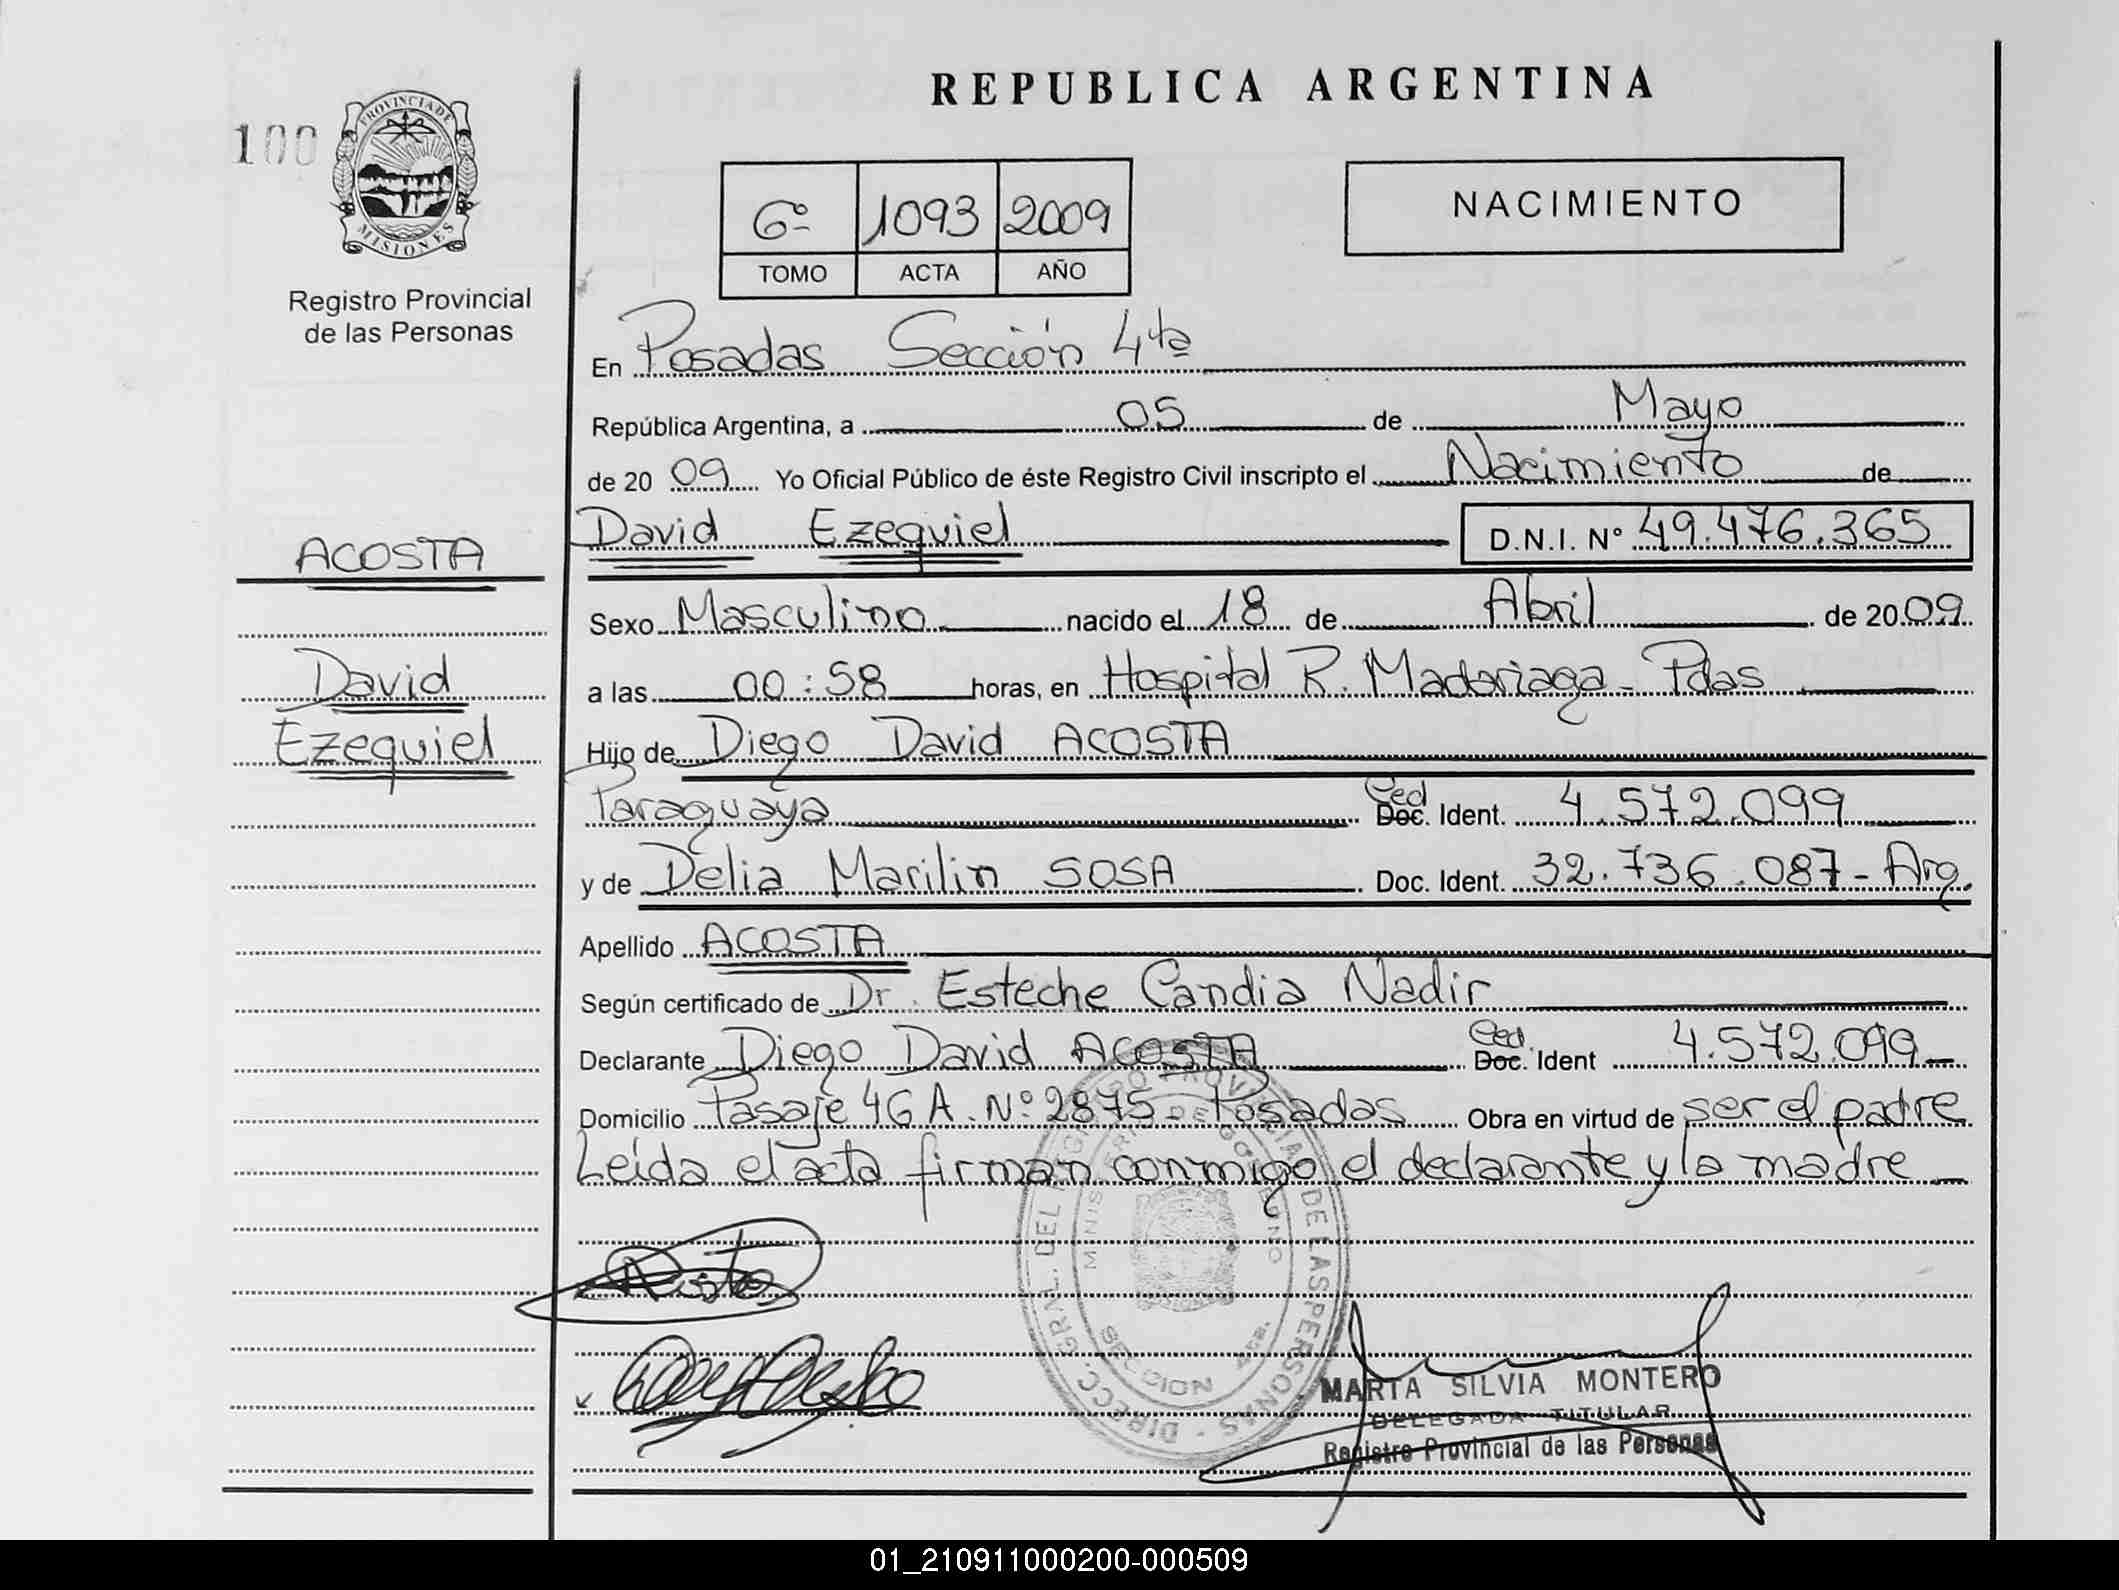 REPUBLICA ARGENTINA
100
PROVINCIA DE
MISIONES
Registro Provincial
de las Personas
6º 1093 2009
TOMO ACTA AÑO
NACIMIENTO
En Posadas Sección 4ta
República Argentina, a 05 de Mayo
de 20 09 Yo Oficial Público de éste Registro Civil inscripto el Nacimiento de
David Ezequiel D.N.I. Nº 49.476.365
ACOSTA
David
Ezequiel
Sexo Masculino nacido el 18 de Abril de 20 09
a las 00:58 horas, en Hospital R. Madariaga - Pdas
Hijo de Diego David ACOSTA
Paraguaya Ced Doc. Ident. 4.572.099
y de Delia Marilin SOSA Doc. Ident. 32.736.087 - Arg.
Apellido ACOSTA
Según certificado de Dr. Esteche Candia Nadir
Declarante Diego David ACOSTA Ced. Doc. Ident 4.572.099
Domicilio Pasaje 46 A. Nº 2875 - Posadas Obra en virtud de ser el padre
Leída el acta firman conmigo el declarante y la madre
DIRECC. GRAL. DEL REGISTRO PROVINCIAL DE LAS PERSONAS
MINISTERIO DE GOBIERNO
SECCION 4ta.
MARTA SILVIA MONTERO
DELEGADA TITULAR
Registro Provincial de las Personas
01_210911000200-000509